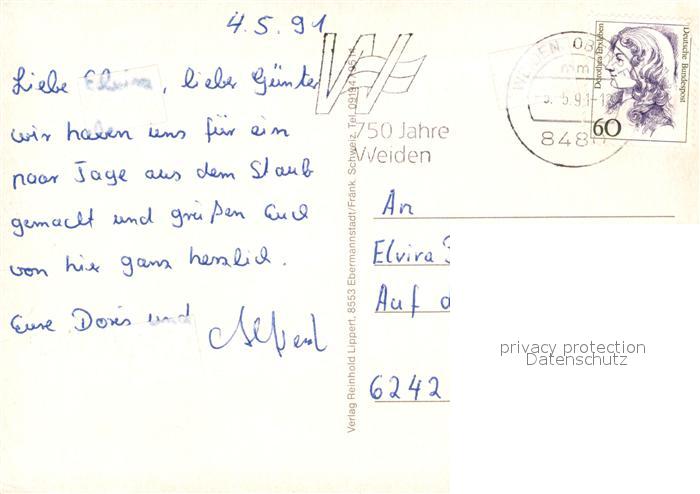 4.5.91
Liebe Elvira, lieber Günter
wir haben uns für ein
paar Tage aus dem Staub
gemacht und grüßen Euch
von hier ganz herzlich.
Eure Doris und Alfred
750 Jahre
Weiden
WEIDEN, OB
mm
-5.5.91-1
8480
Dorothea Erxleben
Deutsche Bundespost
60
Verlag Reinhold Lippert, 8553 Ebermannstadt/Fränk. Schweiz, Tel. 09194
An
Elvira
Auf d
6242
privacy protection
Datenschutz